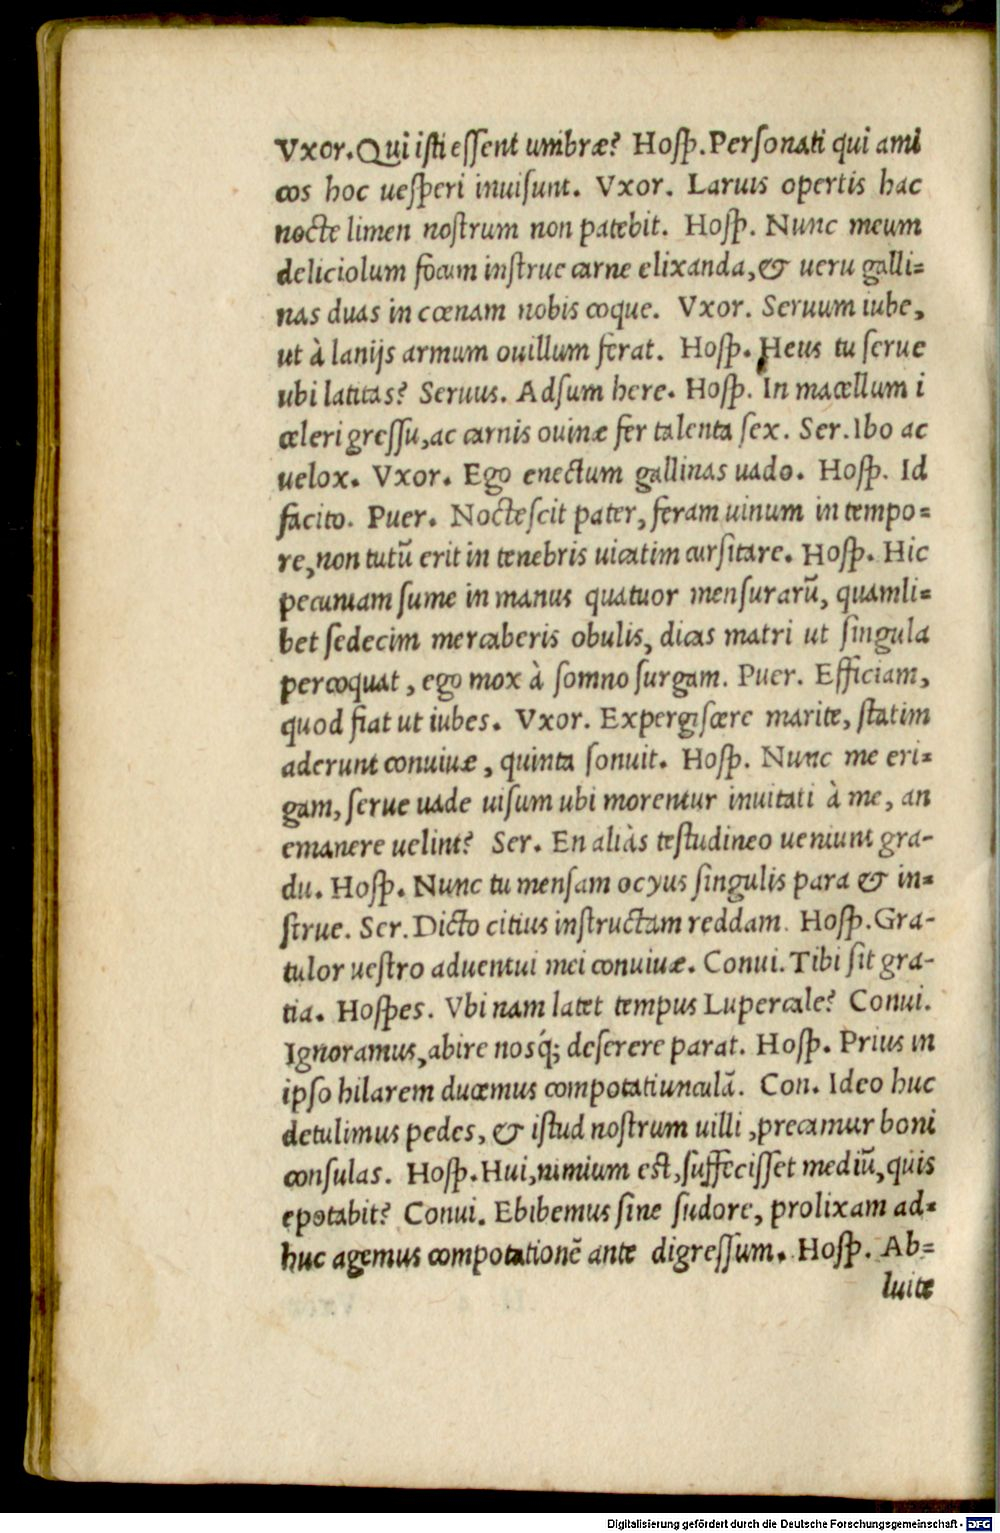 Vxor. Qui isti essent umbræ? Hosp. Personati qui ami
cos hoc uesperi inuisunt. Vxor. Laruis opertis hac
nocte limen nostrum non patebit. Hosp. Nunc meum
deliciolum focum instrue carne elixanda, & ueru galli=
nas duas in cœnam nobis coque. Vxor. Seruum iube,
ut à lanijs armum ouillum ferat. Hosp. Heus tu serue
ubi latitas? Seruus. Adsum here. Hosp. In macellum i
celeri gressu, ac carnis ouinæ fer talenta sex. Ser. Ibo ac
uelox. Vxor. Ego enectum gallinas uado. Hosp. Id
facito. Puer. Noctescit pater, feram uinum in tempo=
re, non tutũ erit in tenebris uicatim cursitare. Hosp. Hic
pecuniam sume in manus quatuor mensurarũ, quamli=
bet sedecim mercaberis obulis, dicas matri ut singula
percoquat, ego mox à somno surgam. Puer. Efficiam,
quod fiat ut iubes. Vxor. Expergiscere marite, statim
aderunt conuiuæ, quinta sonuit. Hosp. Nunc me eri=
gam, serue uade uisum ubi morentur inuitati à me, an
emanere uelint? Ser. En aliàs testudineo ueniunt gra-
du. Hosp. Nunc tu mensam ocyus singulis para & in=
strue. Ser. Dicto citius instructam reddam. Hosp. Gra-
tulor uestro aduentui mei conuiuæ. Conui. Tibi sit gra-
tia. Hospes. Vbi nam latet tempus Lupercale? Conui.
Ignoramus, abire nosq́; deserere parat. Hosp. Prius in
ipso hilarem ducemus compotatiunculã. Con. Ideo huc
detulimus pedes, & istud nostrum uilli, precamur boni
consulas. Hosp. Hui, nimium est, suffecisset mediũ, quis
epotabit? Conui. Ebibemus sine sudore, prolixam ad=
huc agemus compotationẽ ante digressum. Hosp. Ab=
luite
Digitalisierung gefördert durch die Deutsche Forschungsgemeinschaft - DFG